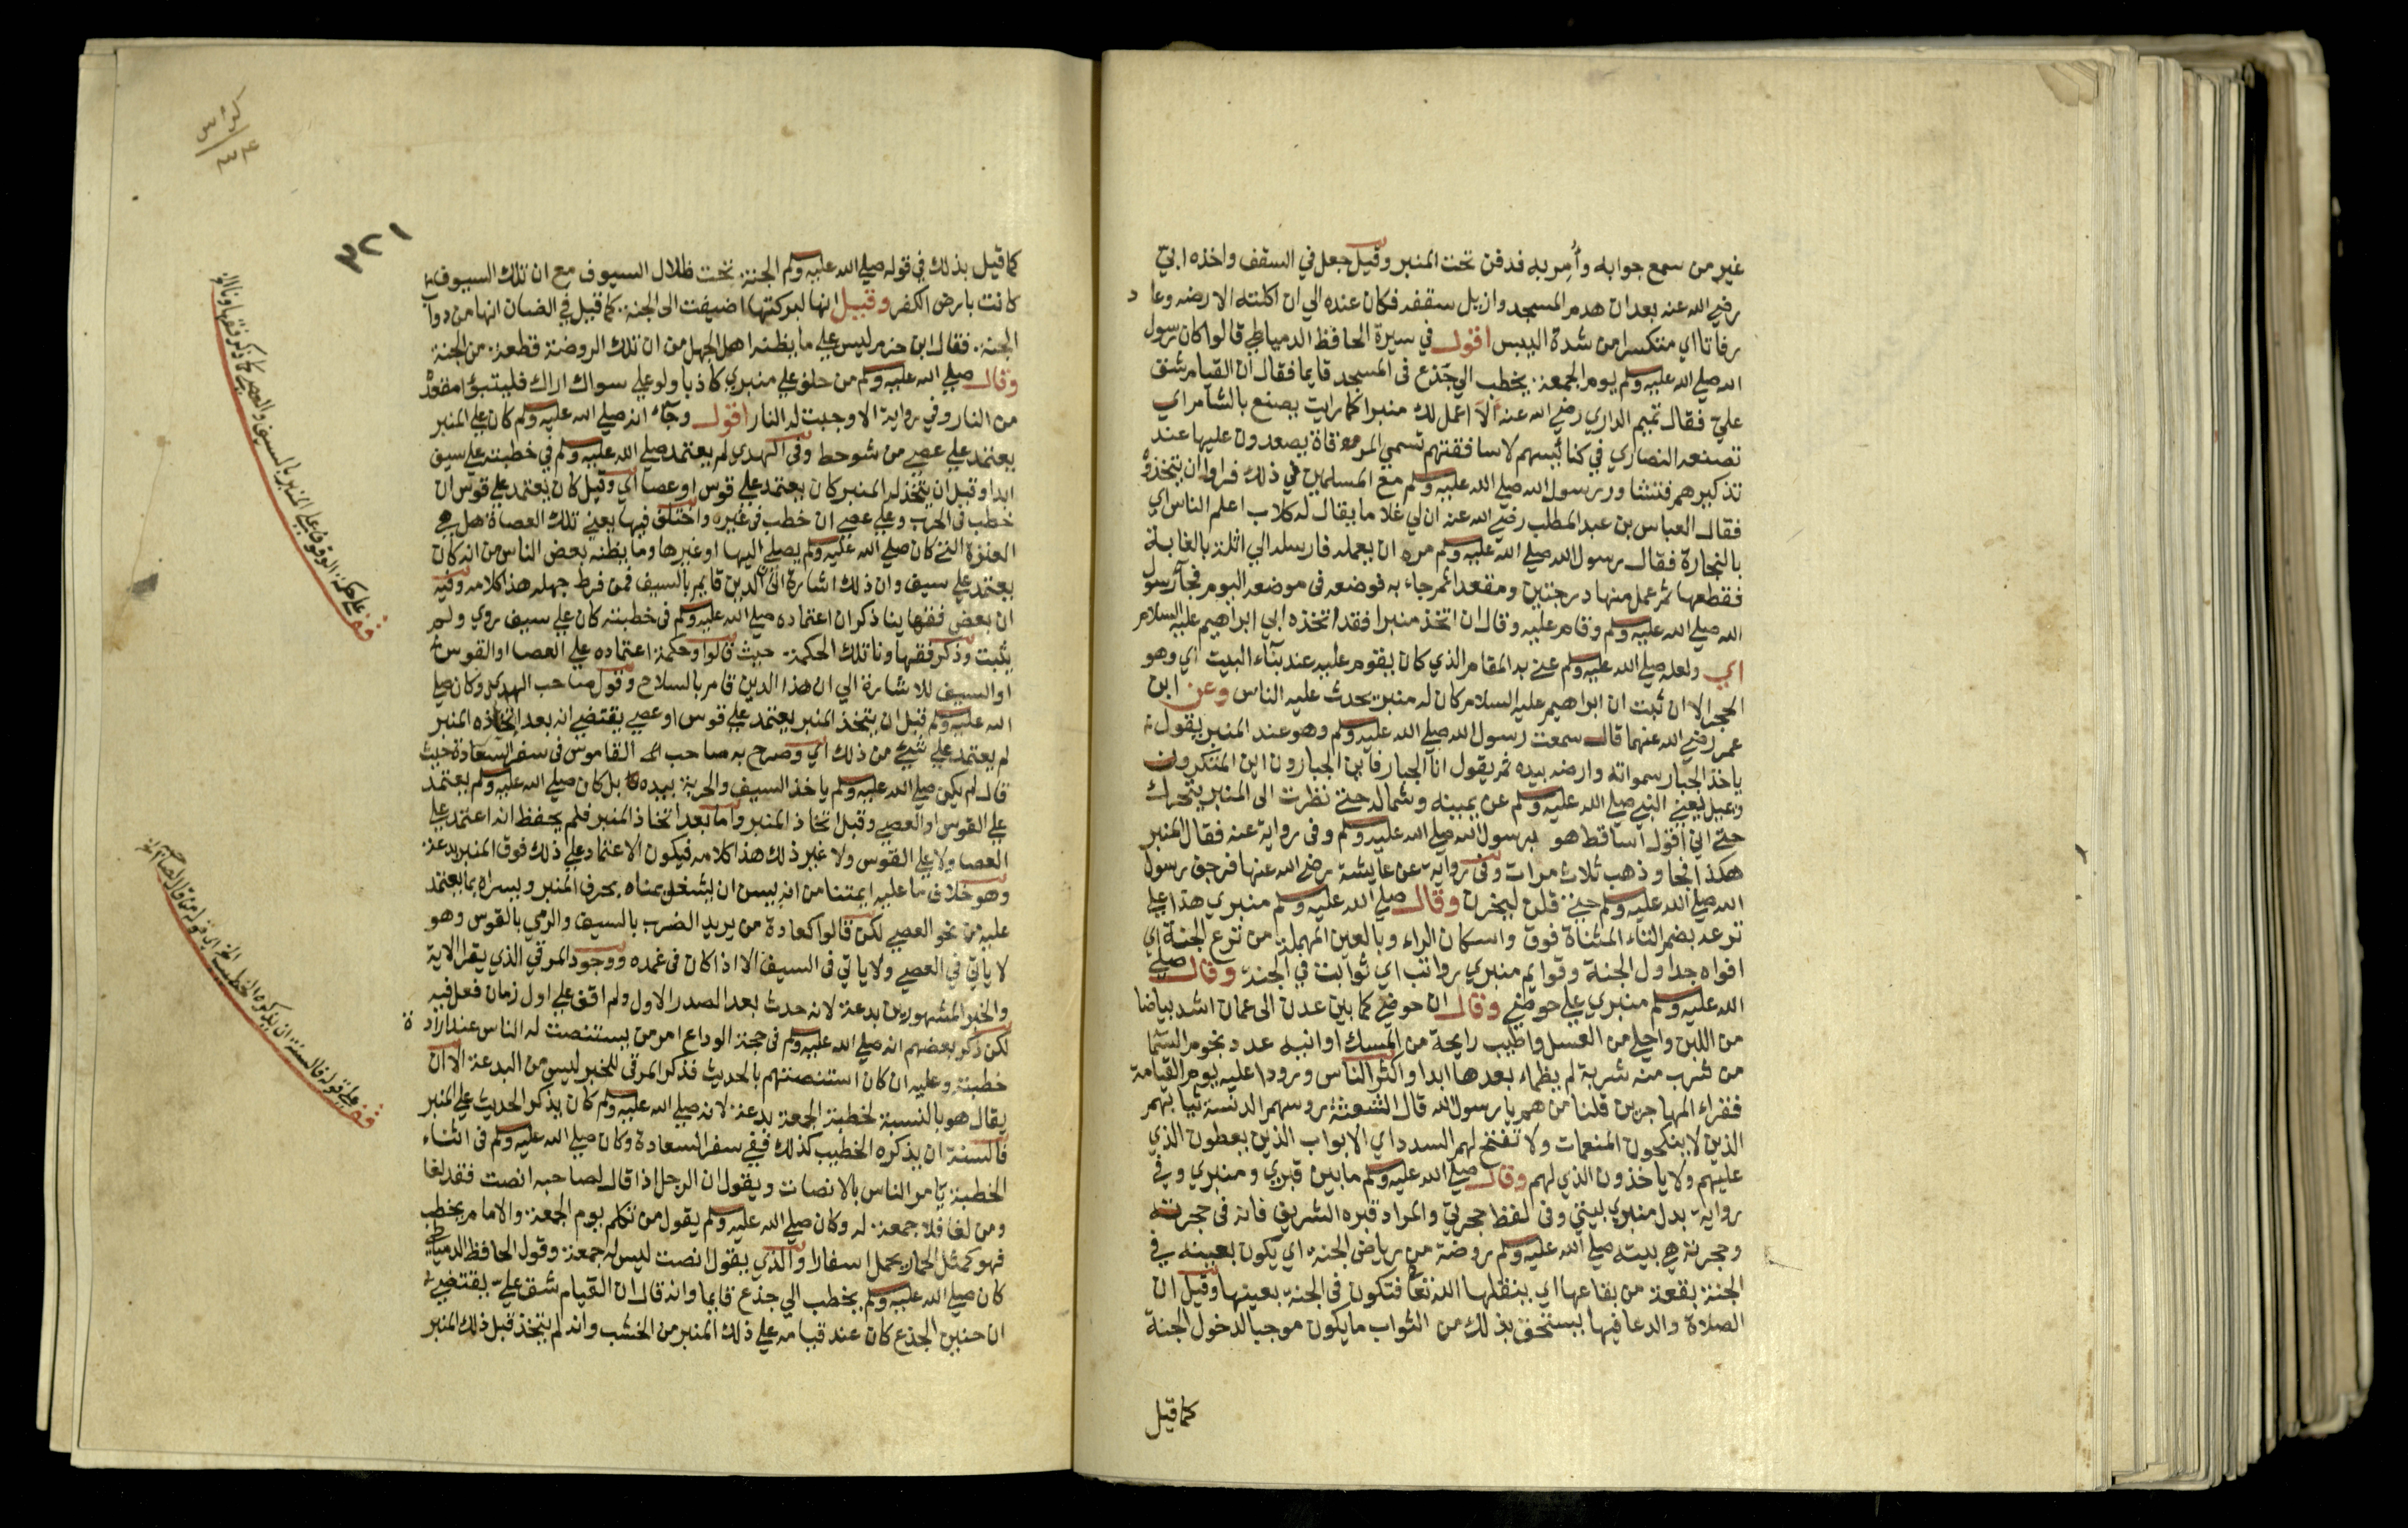 غير من سمع جوابه وأُمِر به فدفن تحت المنبر وقيل جعل في السقف واخذه ابيّ
رضي الله عنه بعد ان هدم المسجد وازيل سقفه فكان عنده الي ان اكلته الارضه وعاد
رفاتا اي متكسرا من شدة اليبس اقول في سيرة الحافظ الدمياطي قالوا كان رسول
الله صلي الله عليه وسلم يوم الجمعة يخطب الي جذع في المسجد قايما فقال ان القيام شق
علي فقال تميم الداري رضي الله عنه ألا اعمل لك منبرا كما رايت يصنع بالشام اي
تصنعه النصاري في كنائسهم لاساقفتهم تسمي المرقاة يصعدون عليها عند
تذكيرهم فتشاور رسول الله صلي الله عليه وسلم مع المسلمين في ذلك فراوا ان يتخذه
فقال العباس بن عبد المطلب رضي الله عنه ان لي غلاما يقال له كلاب اعلم الناس اي
بالنجارة فقال رسول الله صلي الله عليه وسلم مره ان يعمله فارسله الي اثلة بالغابة
فقطعها ثم عمل منها درجتين ومقعدا ثم جاء به فوضعه في موضعه اليوم فجآء رسول
الله صلي الله عليه وسلم وقام عليه وقال ان اتخذ منبرا فقد اتخذه ابي ابراهيم عليه السلام
اي ولعله صلي الله عليه وسلم عني به المقام الذي كان يقوم عليه عند بنآء البيت اي وهو
الحجر الا ان ثبت ان ابراهيم عليه السلام كان له منبر يحدث عليه الناس وعن ابن
عمر رضي الله عنهما قال سمعت رسول الله صلي الله عليه وسلم وهو عند المنبر يقول
ياخذ الجبار سمواته وارضه بيده ثم يقول انا الجبار فاين الجبارون اين المتكبرون
ويميل يعني النبي صلي الله عليه وسلم عن يمينه وشماله حتي نظرت الي المنبر يتحرك
حتي اني اقول اساقط هو برسول الله صلي الله عليه وسلم وفي رواية عنه فقال المنبر
هكذا فجا وذهب ثلاث مرات وفي رواية عن عايشة رضي الله عنها فرجف رسول
الله صلي الله عليه وسلم حتي قلن ليخرن وقال صلي الله عليه وسلم منبري هذا علي
ترعه بضم التاء المثناة فوق واسكان الراء وبالعين المهملة من ترع الجنة اي
افواه جداول الجنة وقوايم منبري رواتب اي ثوابت في الجنة وقال صلي
الله عليه وسلم منبري علي حوضي وقال ان حوضي كما بين عدن الي عمان اشد بياضا
من اللبن واحلي من العسل واطيب رايحة من المسك اوانيه عدد نجوم السما
من شرب منه شربة لم يظماء بعدها ابدا واكثر الناس ورودا عليه يوم القيامة
فقراء المهاجرين قلنا من هم يا رسول الله قال الشعثة روسهم الدنسة ثيابهم
الذين لا ينكحون المنعمات ولا تفتح لهم السدد اي الابواب الذين يعطون الذي
عليهم ولا ياخذون الذي لهم وقال صلي الله عليه وسلم ما بين قبري ومنبري وفي
رواية بدل منبري بيتي وفي لفظ حجرتي والمراد قبره الشريف فانه في حجرته
وحجرته هي بيته صلي الله عليه وسلم روضة من رياض الجنه اي يكون بعينه في
الجنة بقعة من بقاعها اي ينقلها الله تعا فتكون في الجنة بعينها وقيل ان
الصلاة والدعا فيها يستحق بذلك من الثواب ما يكون موجبا لدخول الجنة
كما قيل
كراس
٣٢١
كما قيل بذلك في قوله صلي الله عليه وسلم الجنة تحت ظلال السيوف مع ان تلك السيوف
كانت بارض الكفر وقيل انها لبركتها اضيفت الي الجنة كما قيل في الضان انها من دوآب
الجنة فقال ابن حزم ليس علي ما يظنه اهل الجهل من ان تلك الروضة قطعة من الجنة
وقال صلي الله عليه وسلم من حلف علي منبري كاذبا ولو علي سواك اراك فليتبوا مقعده
من النار وفي رواية الا وجبت له النار اقول وجآء انه صلي الله عليه وسلم كان علي المنبر
يعتمد علي عصي من شوحط وفي الهدي لم يعتمد صلي الله عليه وسلم في خطبته علي سيف
ابدا وقبل ان يتخذ له المنبر كان يعتمد علي قوس او عصا اي وقيل كان يعتمد علي قوس ان
خطب في الحرب وعلي عصي ان خطب في غيره واختلف فيها يعني تلك العصاة هل هي
العنزة التي كان صلي الله عليه وسلم يصلي اليها او غيرها وما يظنه بعض الناس من انه كان
يعتمد علي سيف وان ذلك اشارة الي ان الدين قايم بالسيف فمن فرط جهله هذا كلامه وفيه
ان بعض فقهاينا ذكر ان اعتماده صلي الله عليه وسلم في خطبته كان علي سيف روي ولم
يثبت وذكر فقهاونا تلك الحكمة حيث قالوا وحكمة اعتماده علي العصا او القوس
او السيف للاشارة الي ان هذا الدين قام بالسلاح وقول صاحب الهدي وكان صلي
الله عليه وسلم قبل ان يتخذ المنبر يعتمد علي قوس او عصي يقتضي انه بعد اتخاذه المنبر
لم يعتمد علي شيء من ذلك اي وصرح به صاحب القاموس في سفر السعادة حيث
قال لم يكن صلي الله عليه وسلم ياخذ السيف والحربة بيده بل كان صلي الله عليه وسلم يعتمد
علي القوس او العصي وقبل اتخاذ المنبر واما بعد اتخاذ المنبر فلم يحفظ انه اعتمد علي
العصا ولا علي القوس ولا غير ذلك هذا كلامه فيكون الاعتماد علي ذلك فوق المنبر بدعة
وهو خلاف ما عليه ايمتنا من انه يسن ان يشغل يمناه بحرف المنبر ويسراه بما يعتمد
عليه من نحو العصي لكن قالوا كعادة من يريد الضرب بالسيف والرمي بالقوس وهو
لا ياتي في العصي ولا ياتي في السيف الا اذا كان في غمده ووجود المرقي الذي يقرا الاية
والخبر المشهورين بدعة لانه حدث بعد الصدر الاول ولم اقف علي اول زمان فعل فيه
لكن ذكر بعضهم انه صلي الله عليه وسلم في حجة الوداع امر من يستنصت له الناس عند ارادة
خطبته وعليه ان كان استنصتهم بالحديث فذكر المرقي للخبر ليس من البدعة الا ان
يقال هو بالنسبة لخطبة الجمعة بدعة لانه صلي الله عليه وسلم كان يذكر الحديث علي المنبر
فالسنة ان يذكره الخطيب كذلك ففي سفر السعادة وكان صلي الله عليه وسلم في اثناء
الخطبة يامر الناس بالانصات ويقول ان الرجل اذا قال لصاحبه انصت فقد لغا
ومن لغا فلا جمعة له وكان صلي الله عليه وسلم يقول من تكلم يوم الجمعة والامام يخطب
فهو كمثل الحمار يحمل اسفارا والذي يقول انصت ليس له جمعة وقول الحافظ الدمياطي
كان صلي الله عليه وسلم يخطب الي جذع قايما وانه قال ان القيام شق عليّ يقتضي
ان حنين الجذع كان عند قيامه علي ذلك المنبر من الخشب وانه لم يتخذ قبل ذلك المنبر
قف علي حكمة الوقوف علي المنبر بالسيف والعصي كما ذكره فقهاونا
قف علي قوله فالسنة ان يذكره الخطيب